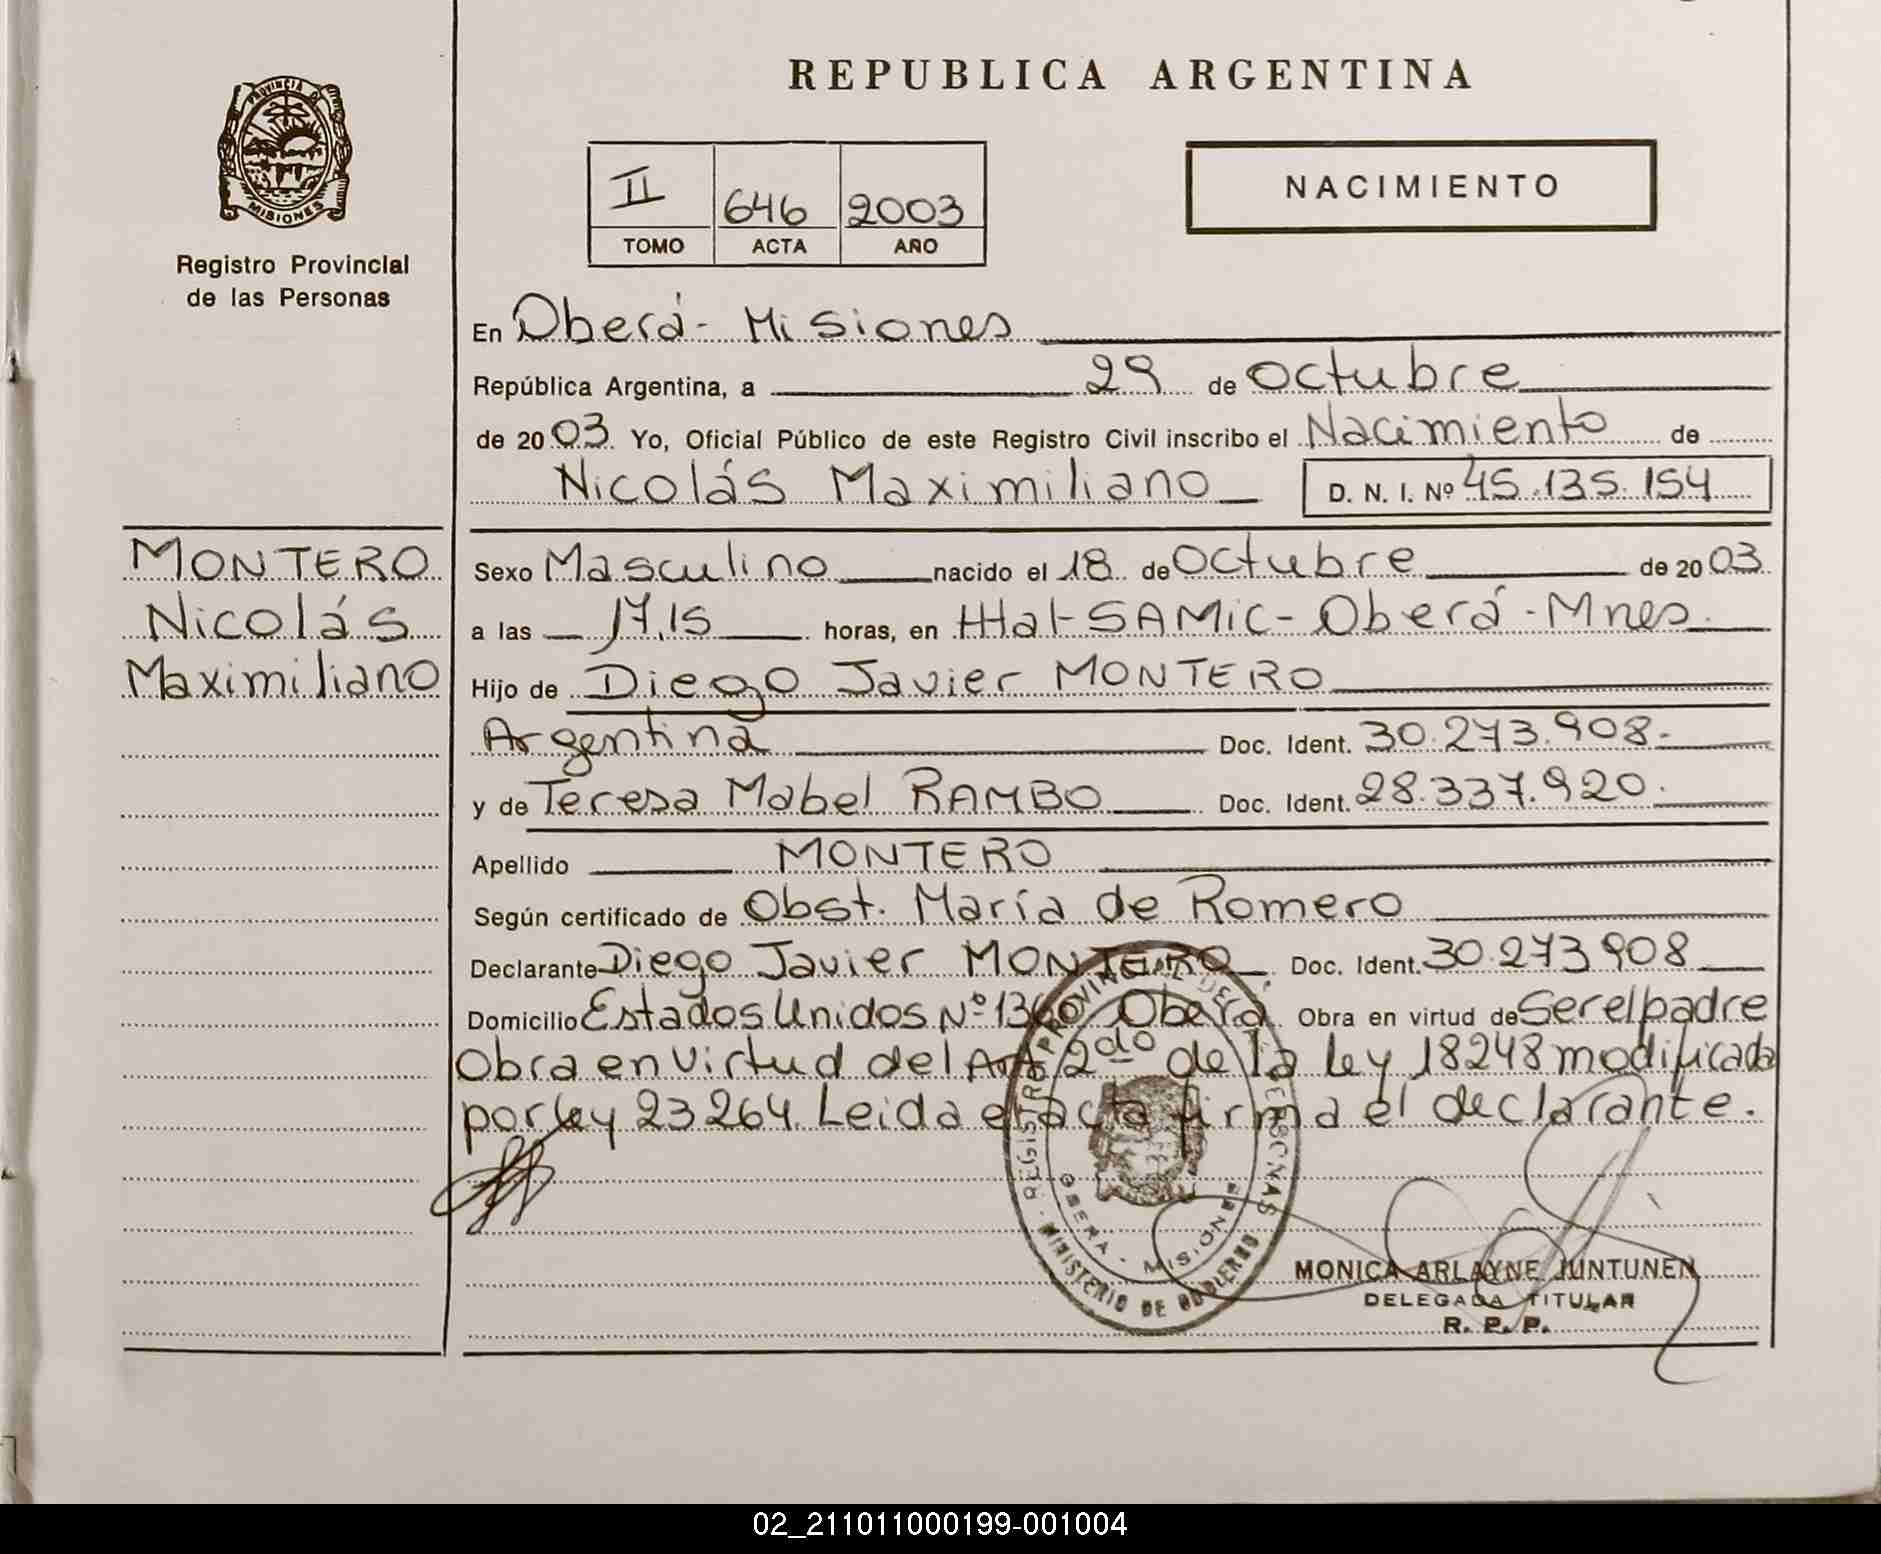 REPUBLICA ARGENTINA
PROVINCIA DE
MISIONES
Registro Provincial
de las Personas
II 646 2003
TOMO ACTA AÑO
NACIMIENTO
En Oberá - Misiones
República Argentina, a 29 de Octubre
de 2003 Yo, Oficial Público de este Registro Civil inscribo el Nacimiento de
Nicolás Maximiliano D. N. I. Nº 45.135.154
MONTERO
Nicolás
Maximiliano
Sexo Masculino nacido el 18 de Octubre de 2003
a las 17,15 horas, en Htal-SAMIC- Oberá - Mnes.
Hijo de Diego Javier MONTERO
Argentina Doc. Ident. 30.273.908.-
y de Teresa Mabel RAMBO Doc. Ident. 28.337.920.
Apellido MONTERO
Según certificado de Obst. María de Romero
Declarante Diego Javier MONTERO Doc. Ident. 30.273908
Domicilio Estados Unidos Nº 1360 Oberá Obra en virtud de Ser el padre
Obra en virtud del Art 2do de la ley 18248 modificada
por ley 23264. Leida el acta firma el declarante.
REGISTRO PROVINCIAL DE LAS PERSONAS
OBERA - MISIONES
MINISTERIO DE GOBIERNO
MONICA ARLAYNE JUNTUNEN
DELEGADA TITULAR
R. P. P.
02_211011000199-001004